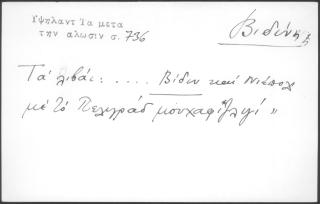 Υψηλαντ Τα μετα
την αλωσιν σ. 736
Βιδίνη
Τα' λιβάι: .... Βίδιν καί Νιέπολ
μέ τό Πελιγράδ μουχαφιζλιγί "